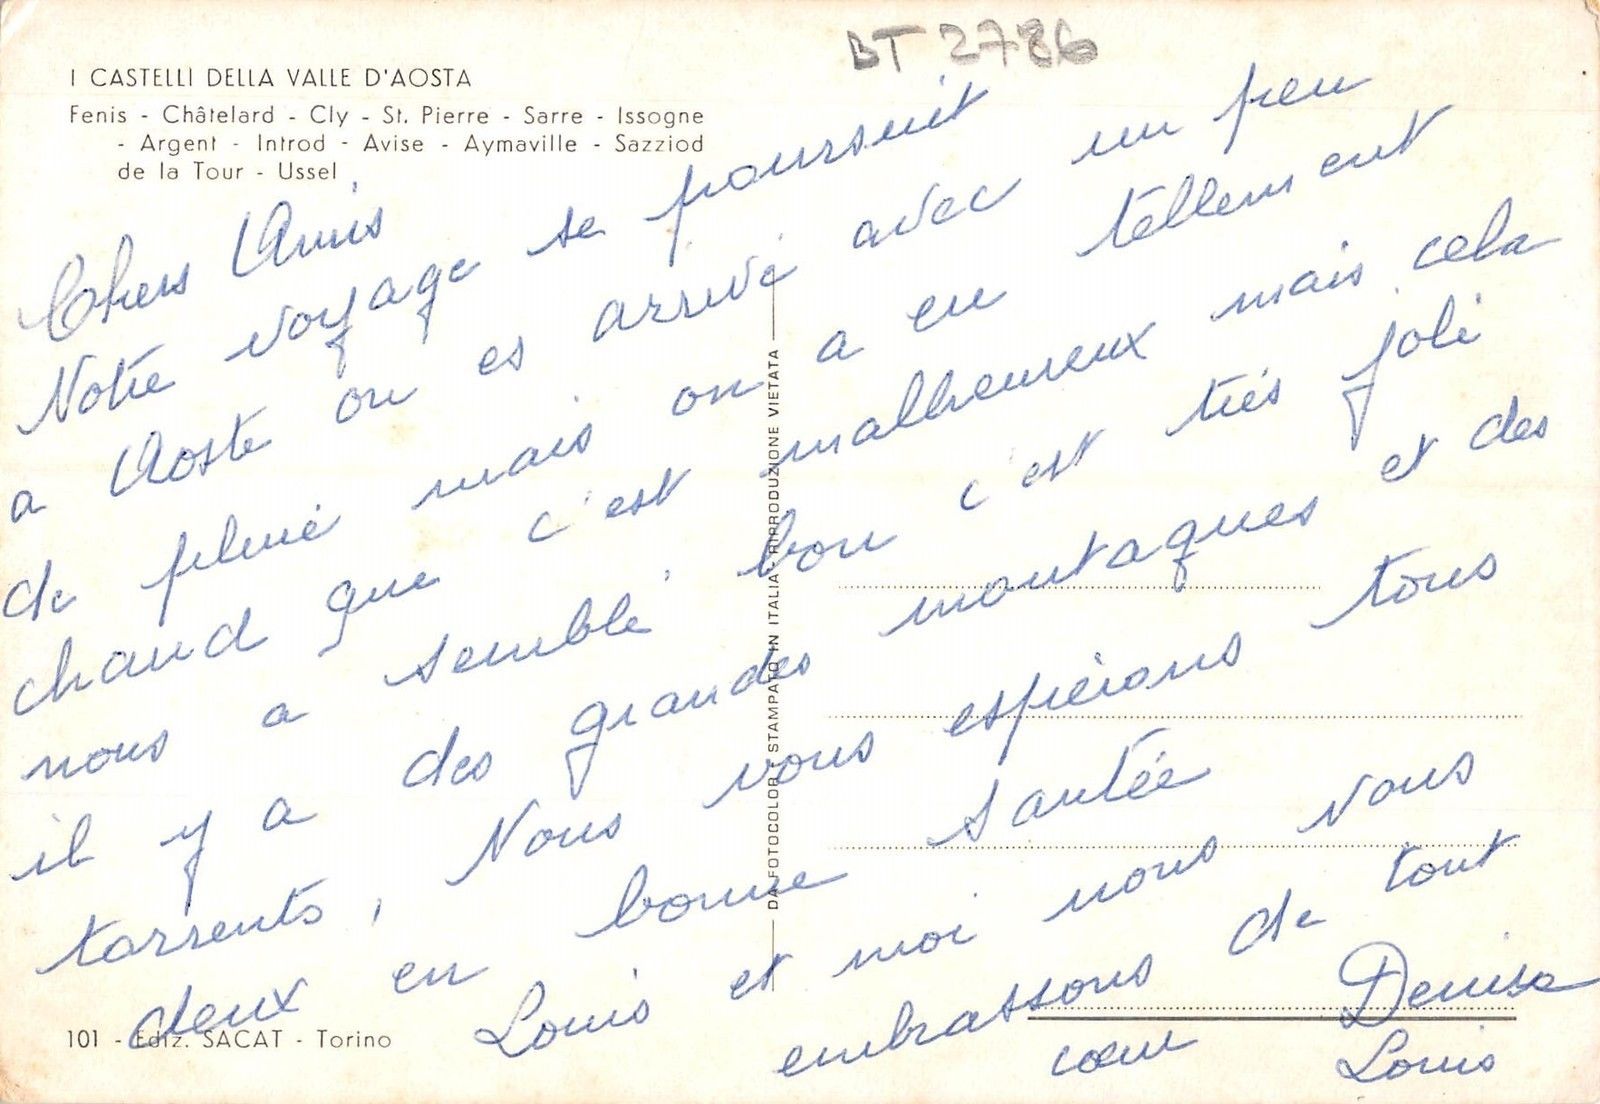 BT 2786
I CASTELLI DELLA VALLE D'AOSTA
Fenis - Châtelard - Cly - St. Pierre - Sarre - Issogne
- Argent - Introd - Avise - Aymaville - Sazziod
de la Tour - Ussel
Chers Amis
Notre voyage se poursuit
a Aoste on es arrivé avec un peu
de pluie mais on a eu tellement
chaud que c'est malheureux mais cela
nous a semblé bon c'est très joli
il y a des grandes montaques et des
torrents, Nous vous espérons tous
deux en bonne santée
Louis et moi nous vous
embrassons de tout
cœur Denise
Louis
DA FOTOCOLOR - STAMPATO IN ITALIA - RIPRODUZIONE VIETATA
101 - Ediz. SACAT - Torino